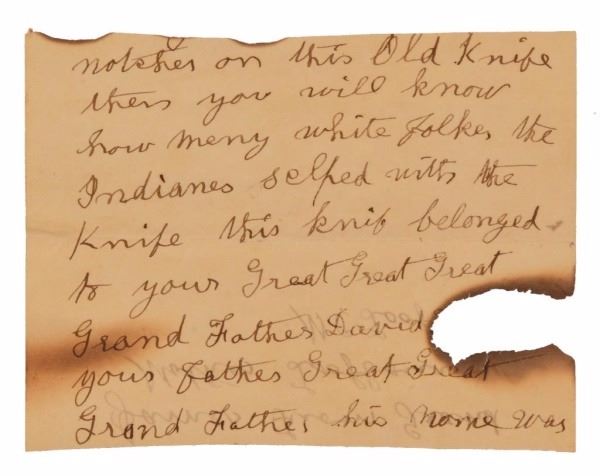 notches on this Old Knife
then you will know
how meny white folkes the
Indianes sclped with the
Knife this knif belonged
to your Great Great Great
Grand Father David
your father Great Great
Grand Father his name was